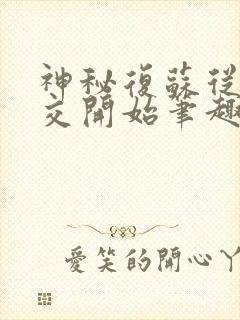 神秘復蘇從
交開始筆趣
愛笑的開心丫